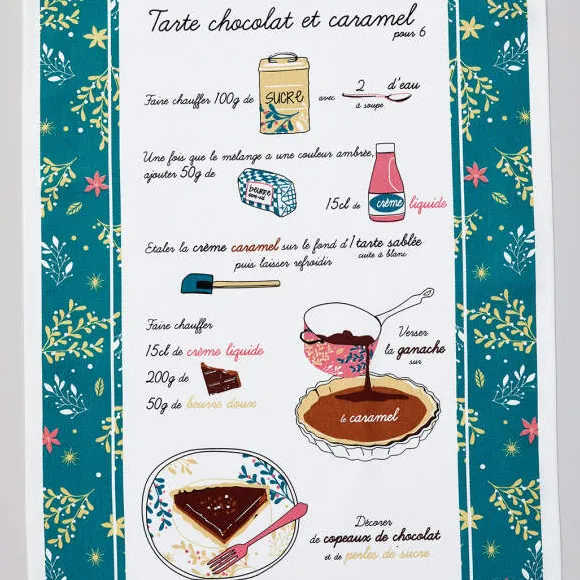 Tarte chocolat et caramel
pour 6
Faire chauffer 100g de SUCRE avec 2 d'eau
à soupe
Une fois que le mélange a une couleur ambrée,
ajouter 50g de
beurre
demi-sel
15cl de crème liquide
Etaler la crème caramel sur le fond d'1 tarte sablée
cuite à blanc
puis laisser refroidir
Faire chauffer
15cl de crème liquide
200g de
50g de beurre doux
Verser
la ganache
sur
le caramel
Décorer
de copeaux de chocolat
et de perles de sucre